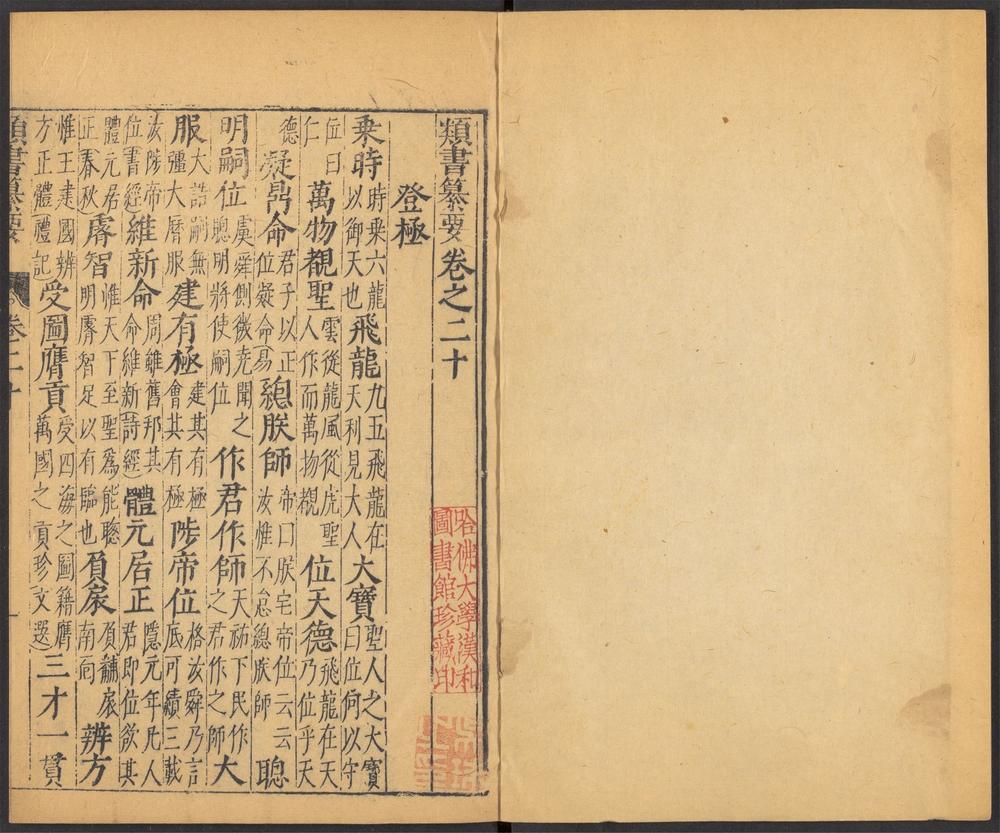 類書纂要卷之二十
哈佛大學漢和
圖書館珍藏印
登極
乘時時乘六龍以御天也飛龍九五飛龍在天利見大人大寶聖人之大寶曰位何以守
位曰仁萬物覩聖雲從龍風從虎聖人作而萬物覩位天德飛龍在天乃位乎天
德凝鼎命君子以正位凝命(易)總朕師帝曰朕宅帝位云云汝惟不怠總朕師聰
明嗣位虞舜側微堯聞之聰明將使嗣位作君作師天祐下民作之君作之師大
服大誥嗣無疆大曆服建有極建其有極會其有極陟帝位格汝舜乃言底可績三載
汝陟帝位(書經)維新命周雖舊邦其命維新(詩經)體元居正隱元年凡人君即位欲其
體元居正(春秋)睿智惟天下至聖爲能聰明睿智足以有臨也負扆負黼扆南面辨方
惟王建國辨方正體(禮記)受圖膺貢受四海之圖籍膺萬國之貢珍(文選)三才一貫
類書纂要 卷二十 一